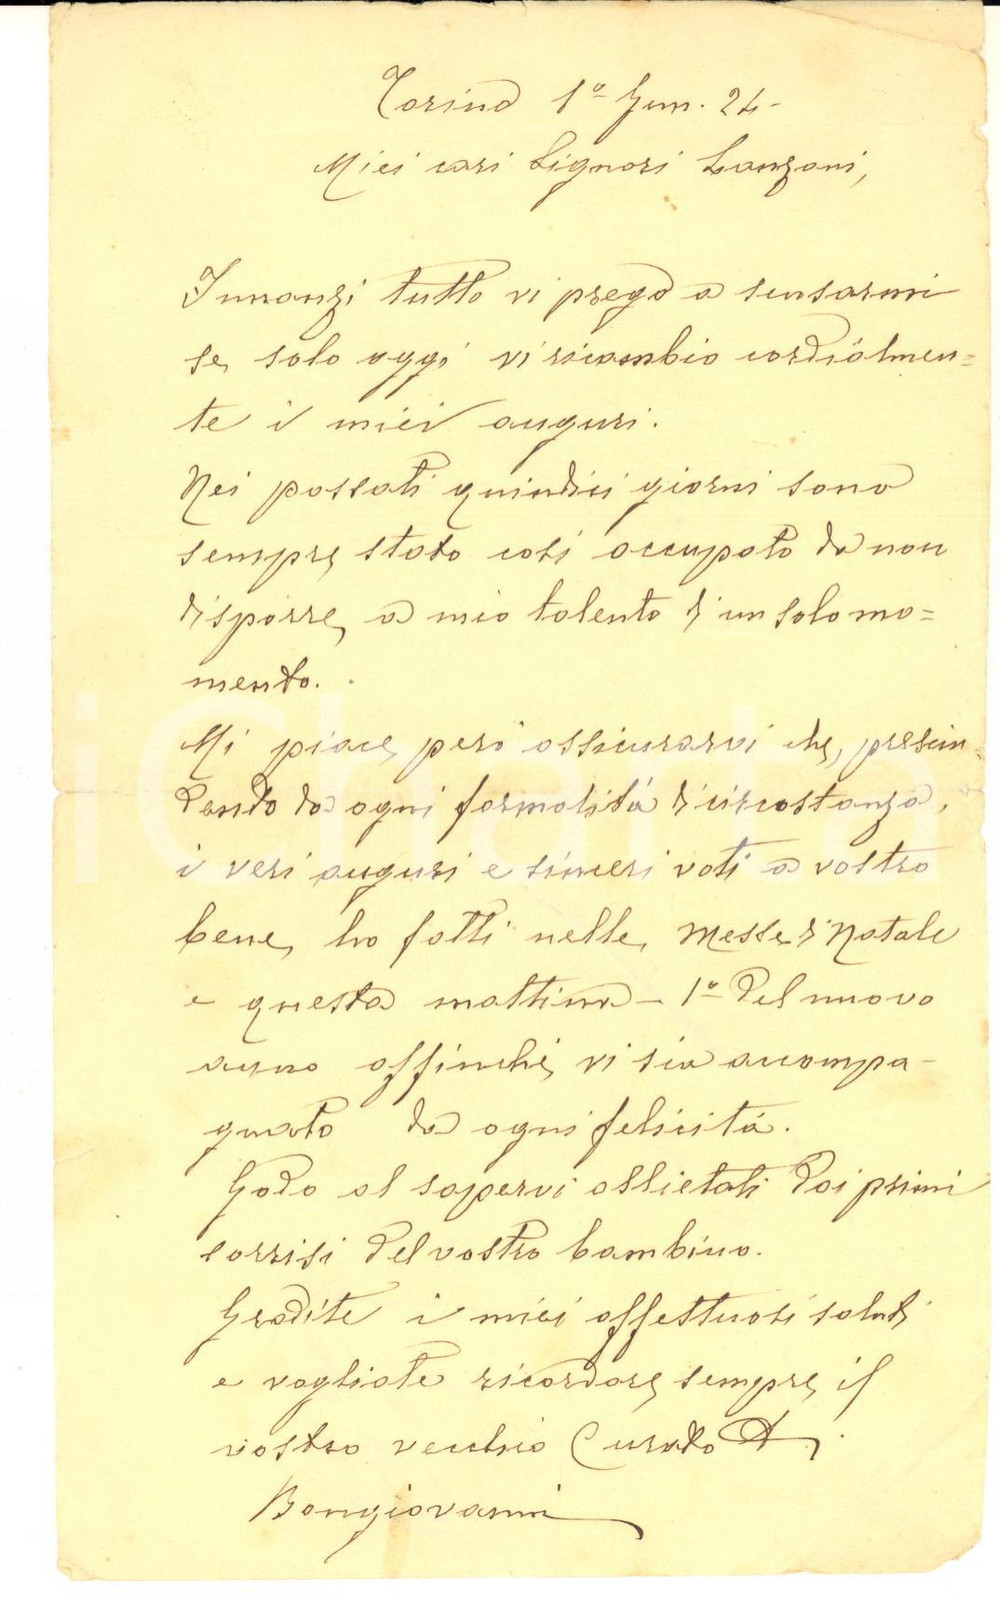 Torino 1º Genn. 24-
Miei cari Signori Lanzoni,
Innanzi tutto vi prego a scusarmi
se solo oggi vi ricambio cordialmen=
te i miei auguri.
Nei passati quindici giorni sono
sempre stato così occupato da non
disporre a mio talento d'un solo mo=
mento.
Mi piace però assicurarvi che, prescin=
dendo da ogni formalità di circostanza,
i veri auguri e sinceri voti a vostro
bene, ho fatti nelle Messe di Natale
e questa mattina - 1º del nuovo
anno affinchè vi sia accompa-
gnato da ogni felicità.
Godo al sapervi allietati dai primi
sorrisi del vostro bambino.
Gradite i miei affettuosi saluti
e vogliate ricordare sempre il
vostro vecchio Curato
Bongiovanni